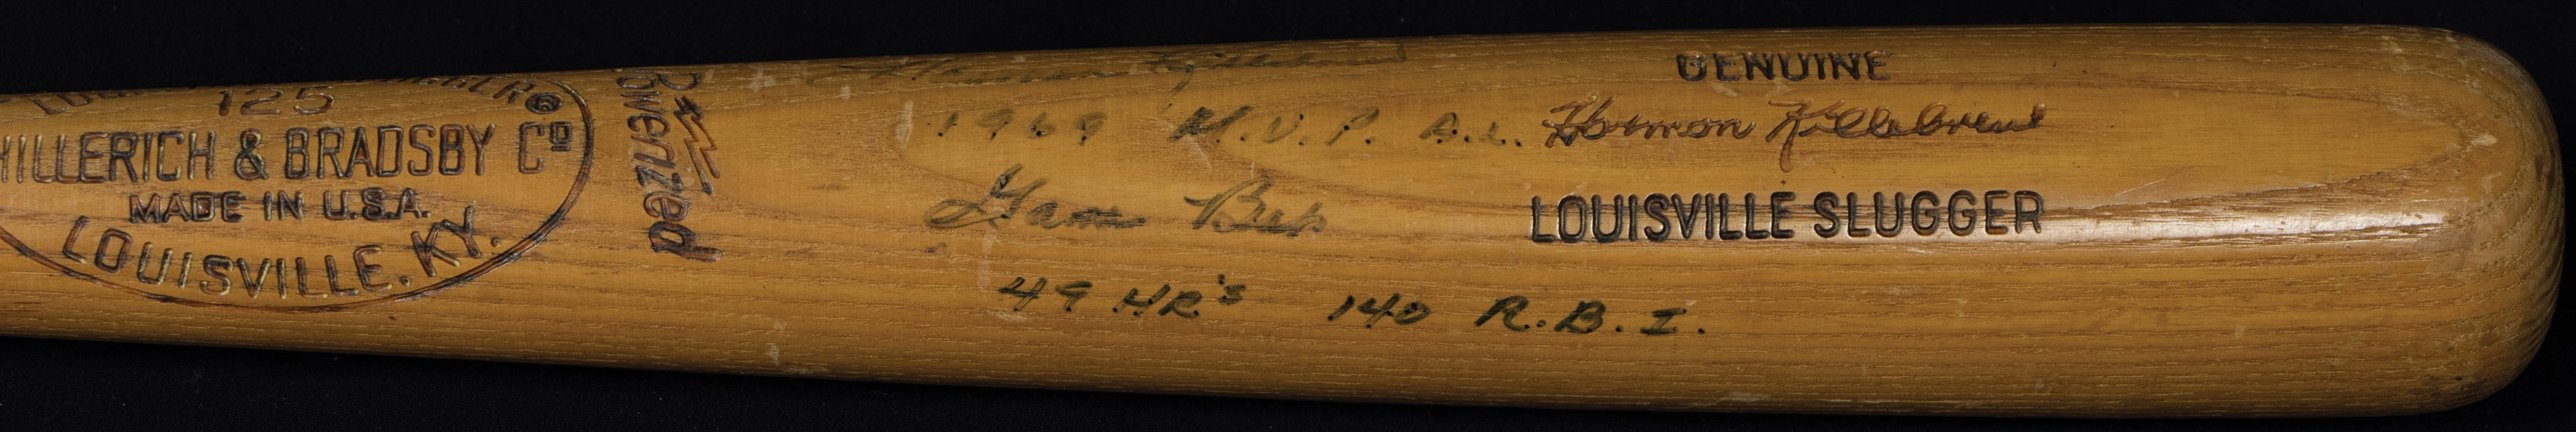 125
HILLERICH & BRADSBY Co
MADE IN U.S.A.
LOUISVILLE, KY.
Powerized
Harmon Killebrew
1969 M.V.P. A.L.
Game Bat
49 HR's 140 R.B.I.
GENUINE
Harmon Killebrew
LOUISVILLE SLUGGER